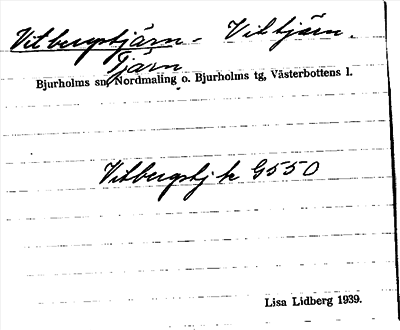 Vitbergstjärn - Viltjärn.
Tjärn
Bjurholms sn, Nordmaling o. Bjurholms tg, Västerbottens l.
Vitbergstj k G550
Lisa Lidberg 1939.